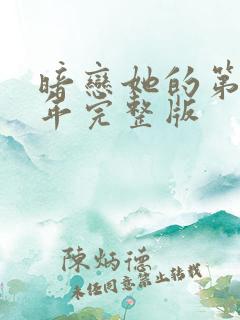 暗戀她的第
年完整版
陳炳德
未经同意禁止转载